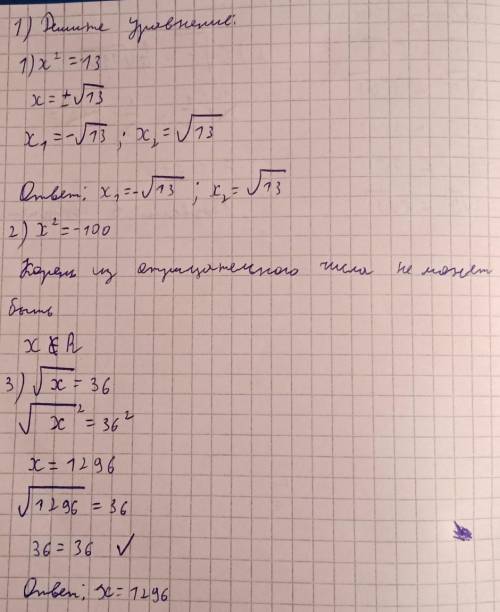 1) Решите уравнение:
1) x² = 13
x = ±√13
x₁ = -√13 ; x₂ = √13
Ответ: x₁ = -√13 ; x₂ = √13
2) x² = -100
Корень из отрицательного числа не может
быть
x ∉ R
3) √x = 36
√x² = 36²
x = 1296
√1296 = 36
36 = 36 ✓
Ответ: x = 1296